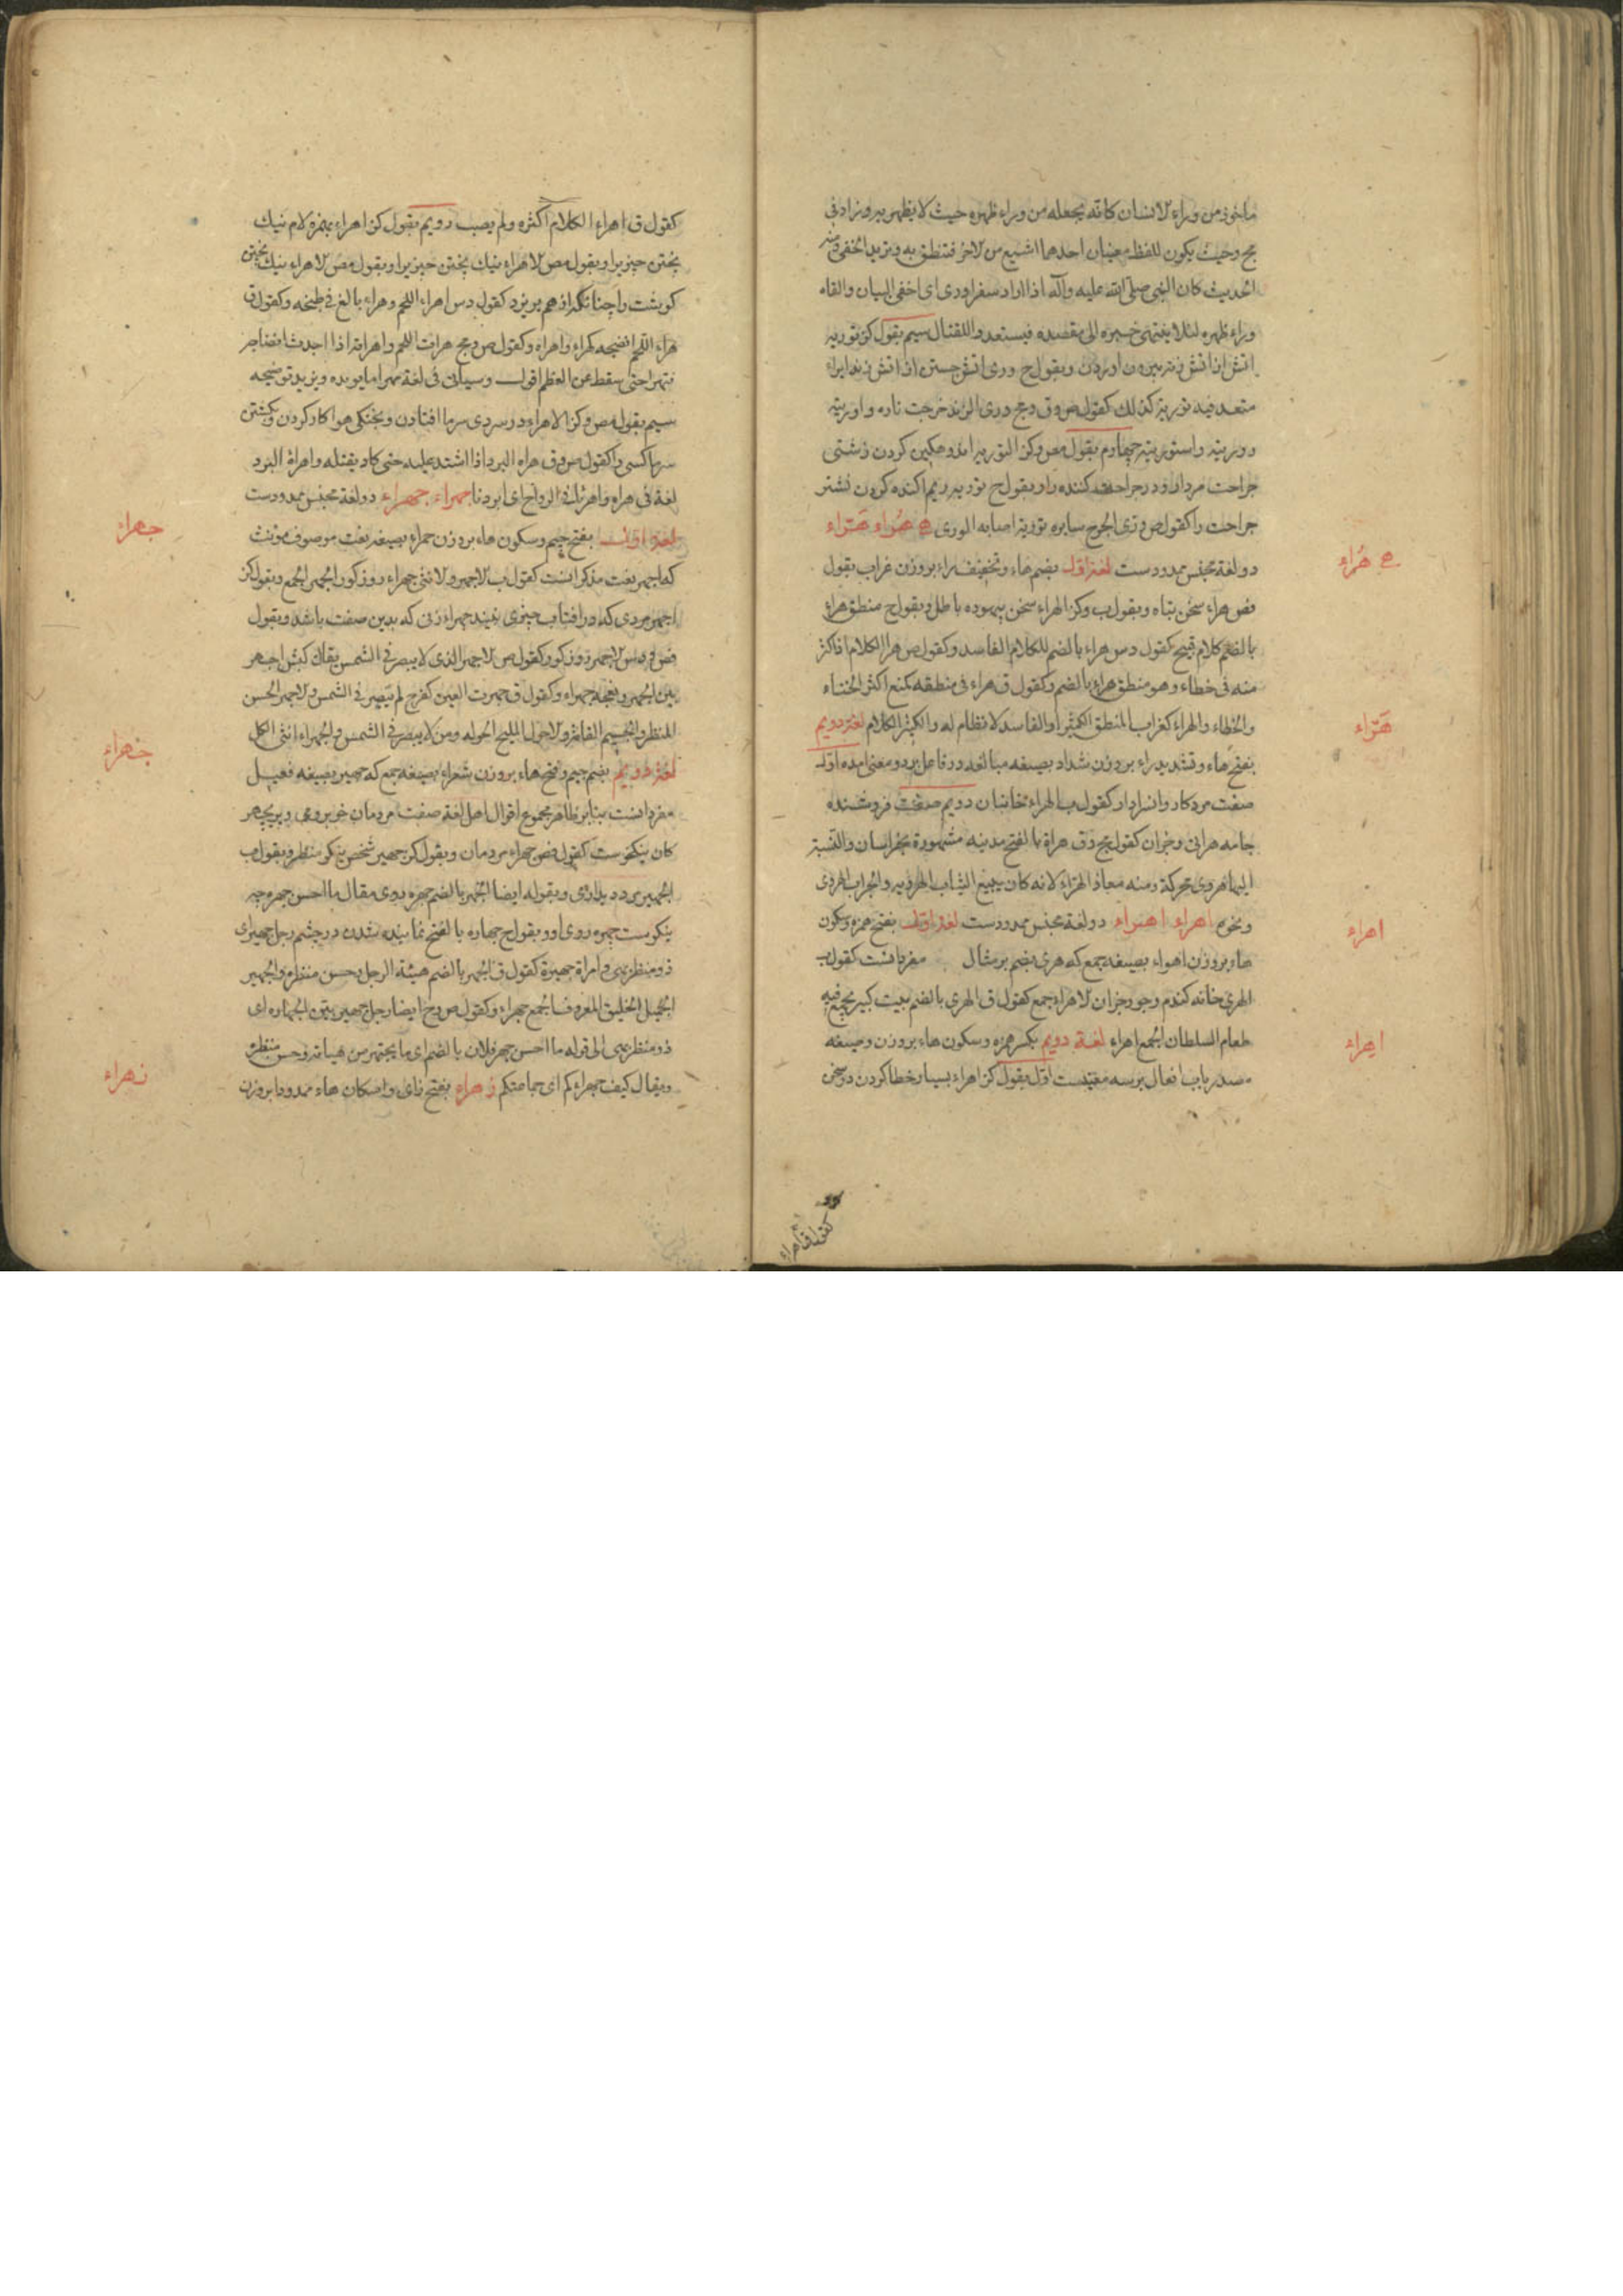 ماخوذ من وراء الانسان كانه يجعله من وراء ظهره حيث لا يظهر
مج وحيث يكون للفظ معنيان احدهما اشيع من الاخر فتنطق به وتريد الخفي ومنه
الحديث كان النبي صلى الله عليه وآله اذا اراد سفرا ورى اى اخفى البيان والقاه
وراء ظهره لئلا ينتهى خبره الى مقصده فيستعدوا للقتال سيم بقول كز توريه
اتش از اتش زنه بيرون اوردن وبقول ح ورى اتش جستن از اتش زنه ايراء
متعد فيه تورية كذلك كقول ص وق ومج ورى الزند خرجت ناره واوريته
ووريته واستوريته چهارم بقول مص وكز التوريه
جراحت را كقول ص ورى الجرح سابره تورية اصابه الورى هُراء هَرّاء
دو لغة مجنس ممدودست لغة اول بضم هاء وتخفيف راء بروزن غراب بقول
فص هراء سخن تباه وبقول ب وكز الهراء سخن بيهوده باطل وبقول ح منطق هراء
بالضم كلام قبيح كقول دس هراء بالضم للكلام الفاسد وكقول ص هرا الكلام اذا كثر
منه فى خطاء وهو منطق هراء بالضم وكقول ق هراء فى منطقه كمنع اكثر الخناء
والخطاء والهراء كغراب المنطق الكثير او الفاسد لا نظام له والكثير الكلام لغة دويم
بفتح هاء وتشديد راء بروزن شداد بصيغه مبالغه ودو معنى امده اول
صفت مرد كقول ب الهراء دويم صفت فروشنده
جامه هراتى وجزان كقول مج وق هراة بالفتح مدينه مشهورة بخراسان والنسبة
اليها هروى محركة ومنه معاذ الهراء لانه كان يبيع الثياب الهرويه والجراب الهروى
ونحوه اهراء اهراء دو لغة مجنس ممدودست لغة اول بفتح همزه وسكون
هاء بروزن اهواء بصيغه جمع كه هرى بضم بر مثال مفرد انست كقول ب
الهرى خانه كندم وجو وجزان الاهراء جمع كقول ق الهرى بالضم بيت كبير يجمع فيه
طعام السلطان الجمع اهراء لغة دويم بكسر همزه وسكون هاء بروزن وصيغه
مصدر باب افعال بر سه معنيست اول بقول كز اهراء بسيار خطا كردن در سخن
هُراء
هَرّاء
اهراء
اهراء
كقول ق اهراء
كقول ق اهراء الكلام اكثره ولم يصب دويم بقول كز اهراء بهمزه لام نيك
پختن چيزيرا وبقول مص الاهراء نيك پختن چيزيرا وبقول مص الاهراء نيك پختن
كوشت را چنانكه از هم بريزد كقول دس اهراء اللحم وهراء بالغ فى طبخه وكقول ق
هراء اللحم انضجه كهراء واهراه وكقول ص ومج هرات اللحم واهراته اذا اجدت انضاجه
فتهرا حتى سقط عن العظم اقول وسياتى فى لغة مهرا ما يويده ويزيد توضيحه
سيم بقول مص وكز الاهراء در سردى سرما افتادن وبخنكى هوا كار كردن وبكشتن
سرما كسى را كقول ص وق هراه البرد اذا اشتد عليه حتى كاد يقتله واهراه البرد
لغة فى هراه واهرئنا فى الرواح اى ابردنا جهراء جهراء دو لغة مجنس ممدودست
لغة اول بفتح جيم وسكون هاء بروزن حمراء بصيغه نعت موصوف مونث
كه اجهر نعت مذكر انست كقول ب الاجهر والانثى جهراء روزكور الجهر الجمع وبقول كز
اجهر مردى كه در افتاب چيزى نبيند جهراء زنى كه بدين صفت باشد وبقول
فص الاجهر روزكور وكقول ص الاجهر الذى لا يبصر فى الشمس يقال كبش اجهر
بين الجهر ونعجة جهراء وكقول ق جهرت العين كفرح لم تبصر فى الشمس والاجهر الحسن
المنظر والجسيم التامه والاحول المليح الحوله ومن لا يبصر فى الشمس والجهراء انثى الكل
لغة دويم بضم جيم وفتح هاء بروزن شعراء بصيغه جمع كه جهير بصيغه فعيل
مفرد انست بنا بر ظاهر مجموع اقوال اهل لغة صفت مردمان خوبروى وپريچهر
كان نيكوست كقول فص جهراء مردمان وبقول كز جهير شخص نيكو منظر وبقول ب
الجهير مرد ديدارى وبقوله ايضا الجهر بالضم چهره روى يقال ما احسن جهره چه
نيكوست چهره روى او وبقول ح جهاره بالفتح نماينده شدن در چشم رجل جهير اى
ذو منظر بهى وامراة جهيرة كقول ق الجهر بالضم هيئة الرجل وحسن منظره والجهير
الجميل الخليق المعروف الجمع جهراء وكقول ص ومج ايضا رجل جهير بين الجهاره اى
ذو منظر بهى الى قوله ما احسن جهر فلان بالضم اى ما يجتهر من هيئاته وحسن منظره
ويقال كيف جهراءكم اى جماعتكم زهراء بفتح زاى واسكان هاء ممدودا بروزن
جهراء
جهراء
زهراء